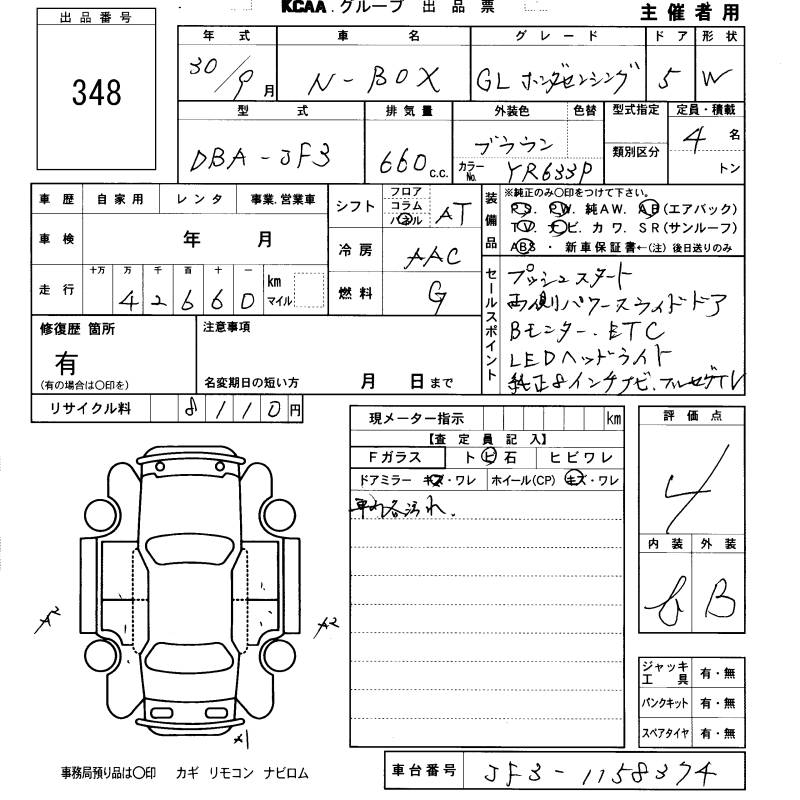 KCAA.グループ 出品票
主催者用
出品番号
348
年式 車名 グレード ドア 形状
30/9月 N-BOX GL ホンダセンシング 5 W
型式 排気量 外装色 色替 型式指定 定員・積載
DBA-JF3 660c.c. ブラウン 類別区分 4名
カラーNo. YR633P トン
車歴 自家用 レンタ 事業.営業車
車検 年 月
走行 十万 万 千 百 十 一 km マイル
42660
シフト フロア コラム パネル AT
冷房 AAC
燃料 G
装備品 ※純正のみ○印をつけて下さい。
PS. PW. 純AW. AB(エアバック)
TV. ナビ. カワ. SR(サンルーフ)
ABS ・ 新車保証書←(注) 後日送りのみ
セールスポイント
プッシュスタート
両側パワースライドドア
Bモニター.ETC
LEDヘッドライト
純正8インチナビ.フルセグTV
修復歴 箇所 注意事項
有
(有の場合は○印を) 名変期日の短い方 月 日まで
リサイクル料 8110円
現メーター指示 km
【査定員記入】
Fガラス ト ヒ 石 ヒビワレ
ドアミラー キズ・ワレ ホイール(CP) キズ・ワレ
車内各汚れ.
評価点
4
内装 外装
B
A2
A2
ジャッキ工具 有・無
パンクキット 有・無
スペアタイヤ 有・無
事務局預り品は○印 カギ リモコン ナビロム
車台番号 JF3-1158374